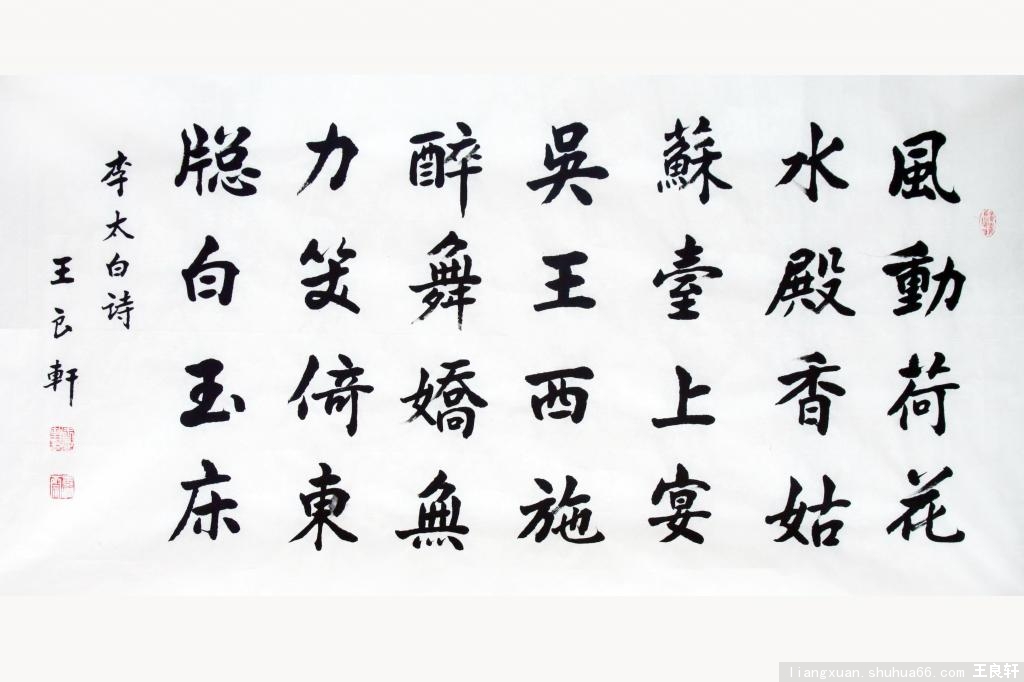 風動荷花
水殿香姑
蘇臺上宴
吳王西施
醉舞嬌無
力笑倚東
牕白玉床
李太白诗
王良軒
liangxuan.shuhua66.com 王良轩